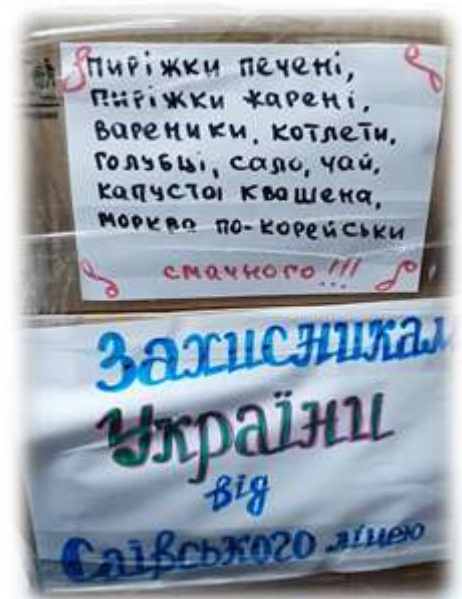 Пиріжки печені,
пиріжки жарені,
вареники, котлети,
голубці, сало, чай,
капуста квашена,
морква по-корейськи
смачного!!!
Захисникам
України
від
Саївського ліцею